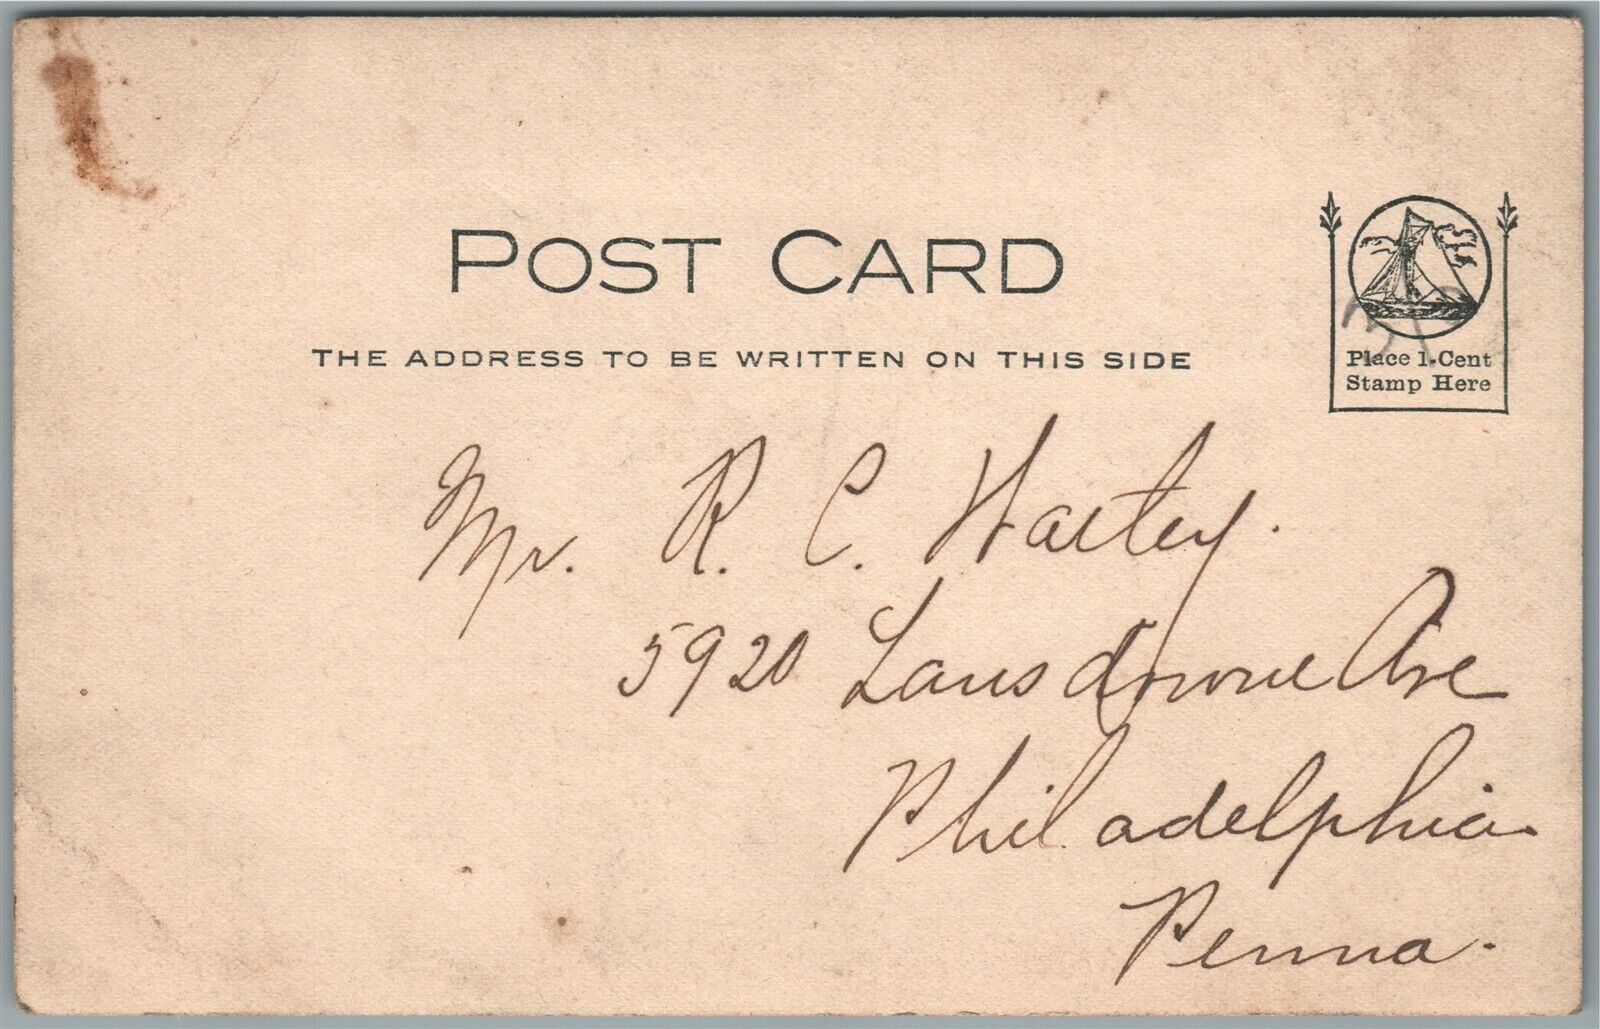 POST CARD
THE ADDRESS TO BE WRITTEN ON THIS SIDE
Place 1-Cent
Stamp Here
Mr. R. C. Hartey.
5920 Lansdowne Ave
Philadelphia.
Penna.